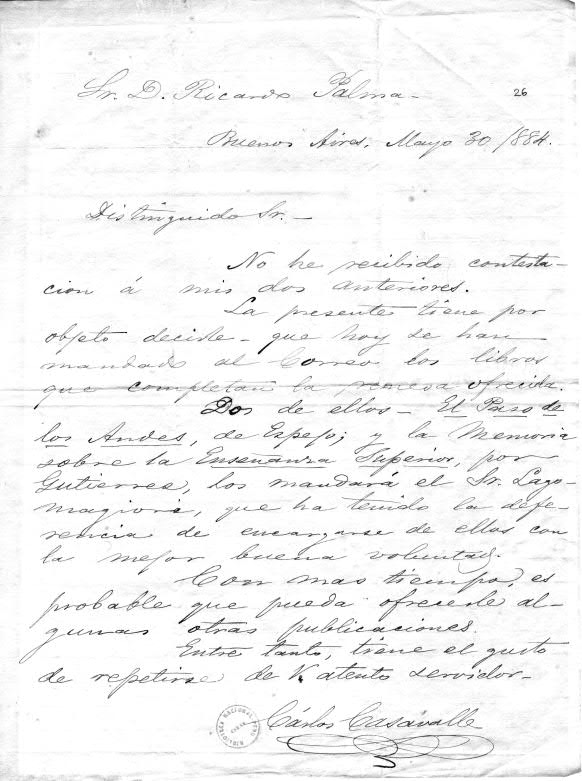 Sr. D. Ricardo Palma-
26
Buenos Aires, Mayo 30/884.
Distinguido Sr.-
No he recibido contesta-
cion á mis dos anteriores.
La presente tiene por
objeto decirle - que hoy se han
mandado al Correo los libros
que completan la remesa ofrecida.
Dos de ellos - El Paso de
los Andes, de Espejo; y la Memoria
sobre la Enseñanza Superior, por
Gutierres, los mandará el Sr. Lago-
magiore, que ha tenido la defe-
rencia de encargarse de ellos con
la mejor buena voluntad.
Con mas tiempo, es
probable que pueda ofrecerle al-
gunas otras publicaciones.
Entre tanto, tiene el gusto
de repetirse de V. atento servidor-
Cárlos Casavalle
BIBLIOTECA NACIONAL